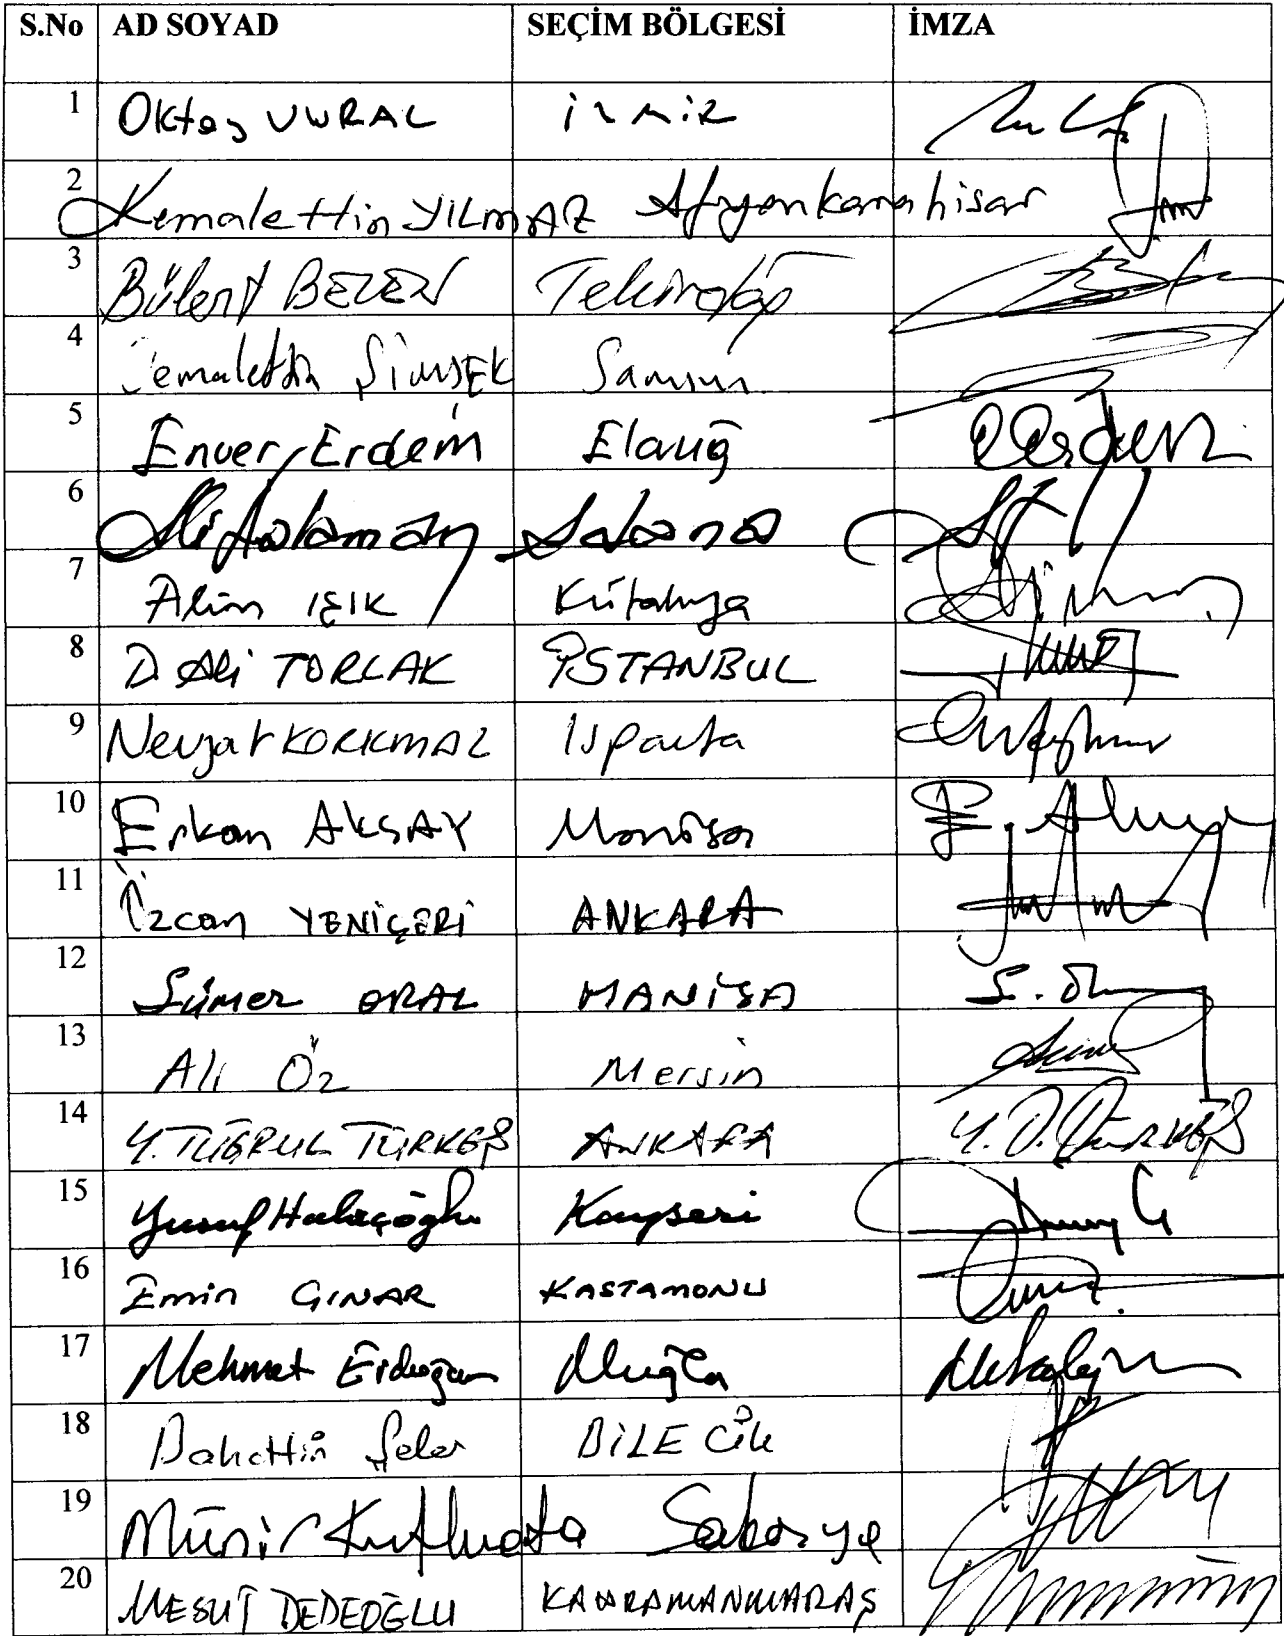 S.No AD SOYAD SEÇİM BÖLGESİ İMZA
1 Oktay VURAL İZMİR
2 Kemalettin YILMAZ Afyonkarahisar
3 Bülent BELEN Tekirdağ
4 Cemalettin ŞİMŞEK Samsun
5 Enver Erdem Elazığ
6 Ali Halaman Adana
7 Alim IŞIK Kütahya
8 D. Ali TORLAK İSTANBUL
9 Nevzat KORKMAZ Isparta
10 Erkan AKÇAY Manisa
11 Özcan YENİÇERİ ANKARA
12 Sümer ORAL MANİSA
13 Ali Öz Mersin
14 Y. TUĞRUL TÜRKEŞ ANKARA
15 Yusuf Halaçoğlu Kayseri
16 Emin ÇINAR KASTAMONU
17 Mehmet Erdoğan Muğla
18 Bahattin Şeker BİLECİK
19 Münir Kutluata Sakarya
20 MESUT DEDEOĞLU KAHRAMANMARAŞ